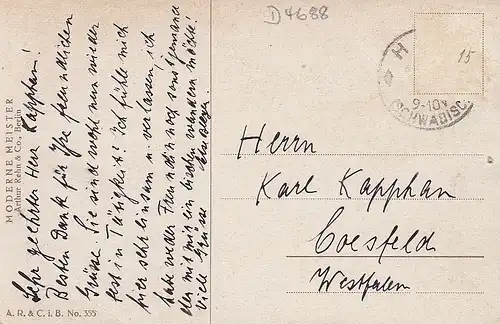 D 4688
MODERNE MEISTER
Arthur Rehn & Co., Berlin
Sehr geehrter Herr Kapphan!
Besten Dank für Ihre freundlichen
Grüsse. Sie sind wohl nun wieder
fest in Tätigkeit! Ich fühle mich
hier sehr einsam u. verlassen, ich
habe weder Freundin noch sonst jemand
der mit mir ein bischen wandern möchte!
Viele Grüsse
A. R. & C. i. B. No. 355
H
9-10V
(SCHWÄBISCH
15
Herrn
Karl Kapphan
Coesfeld
Westfalen